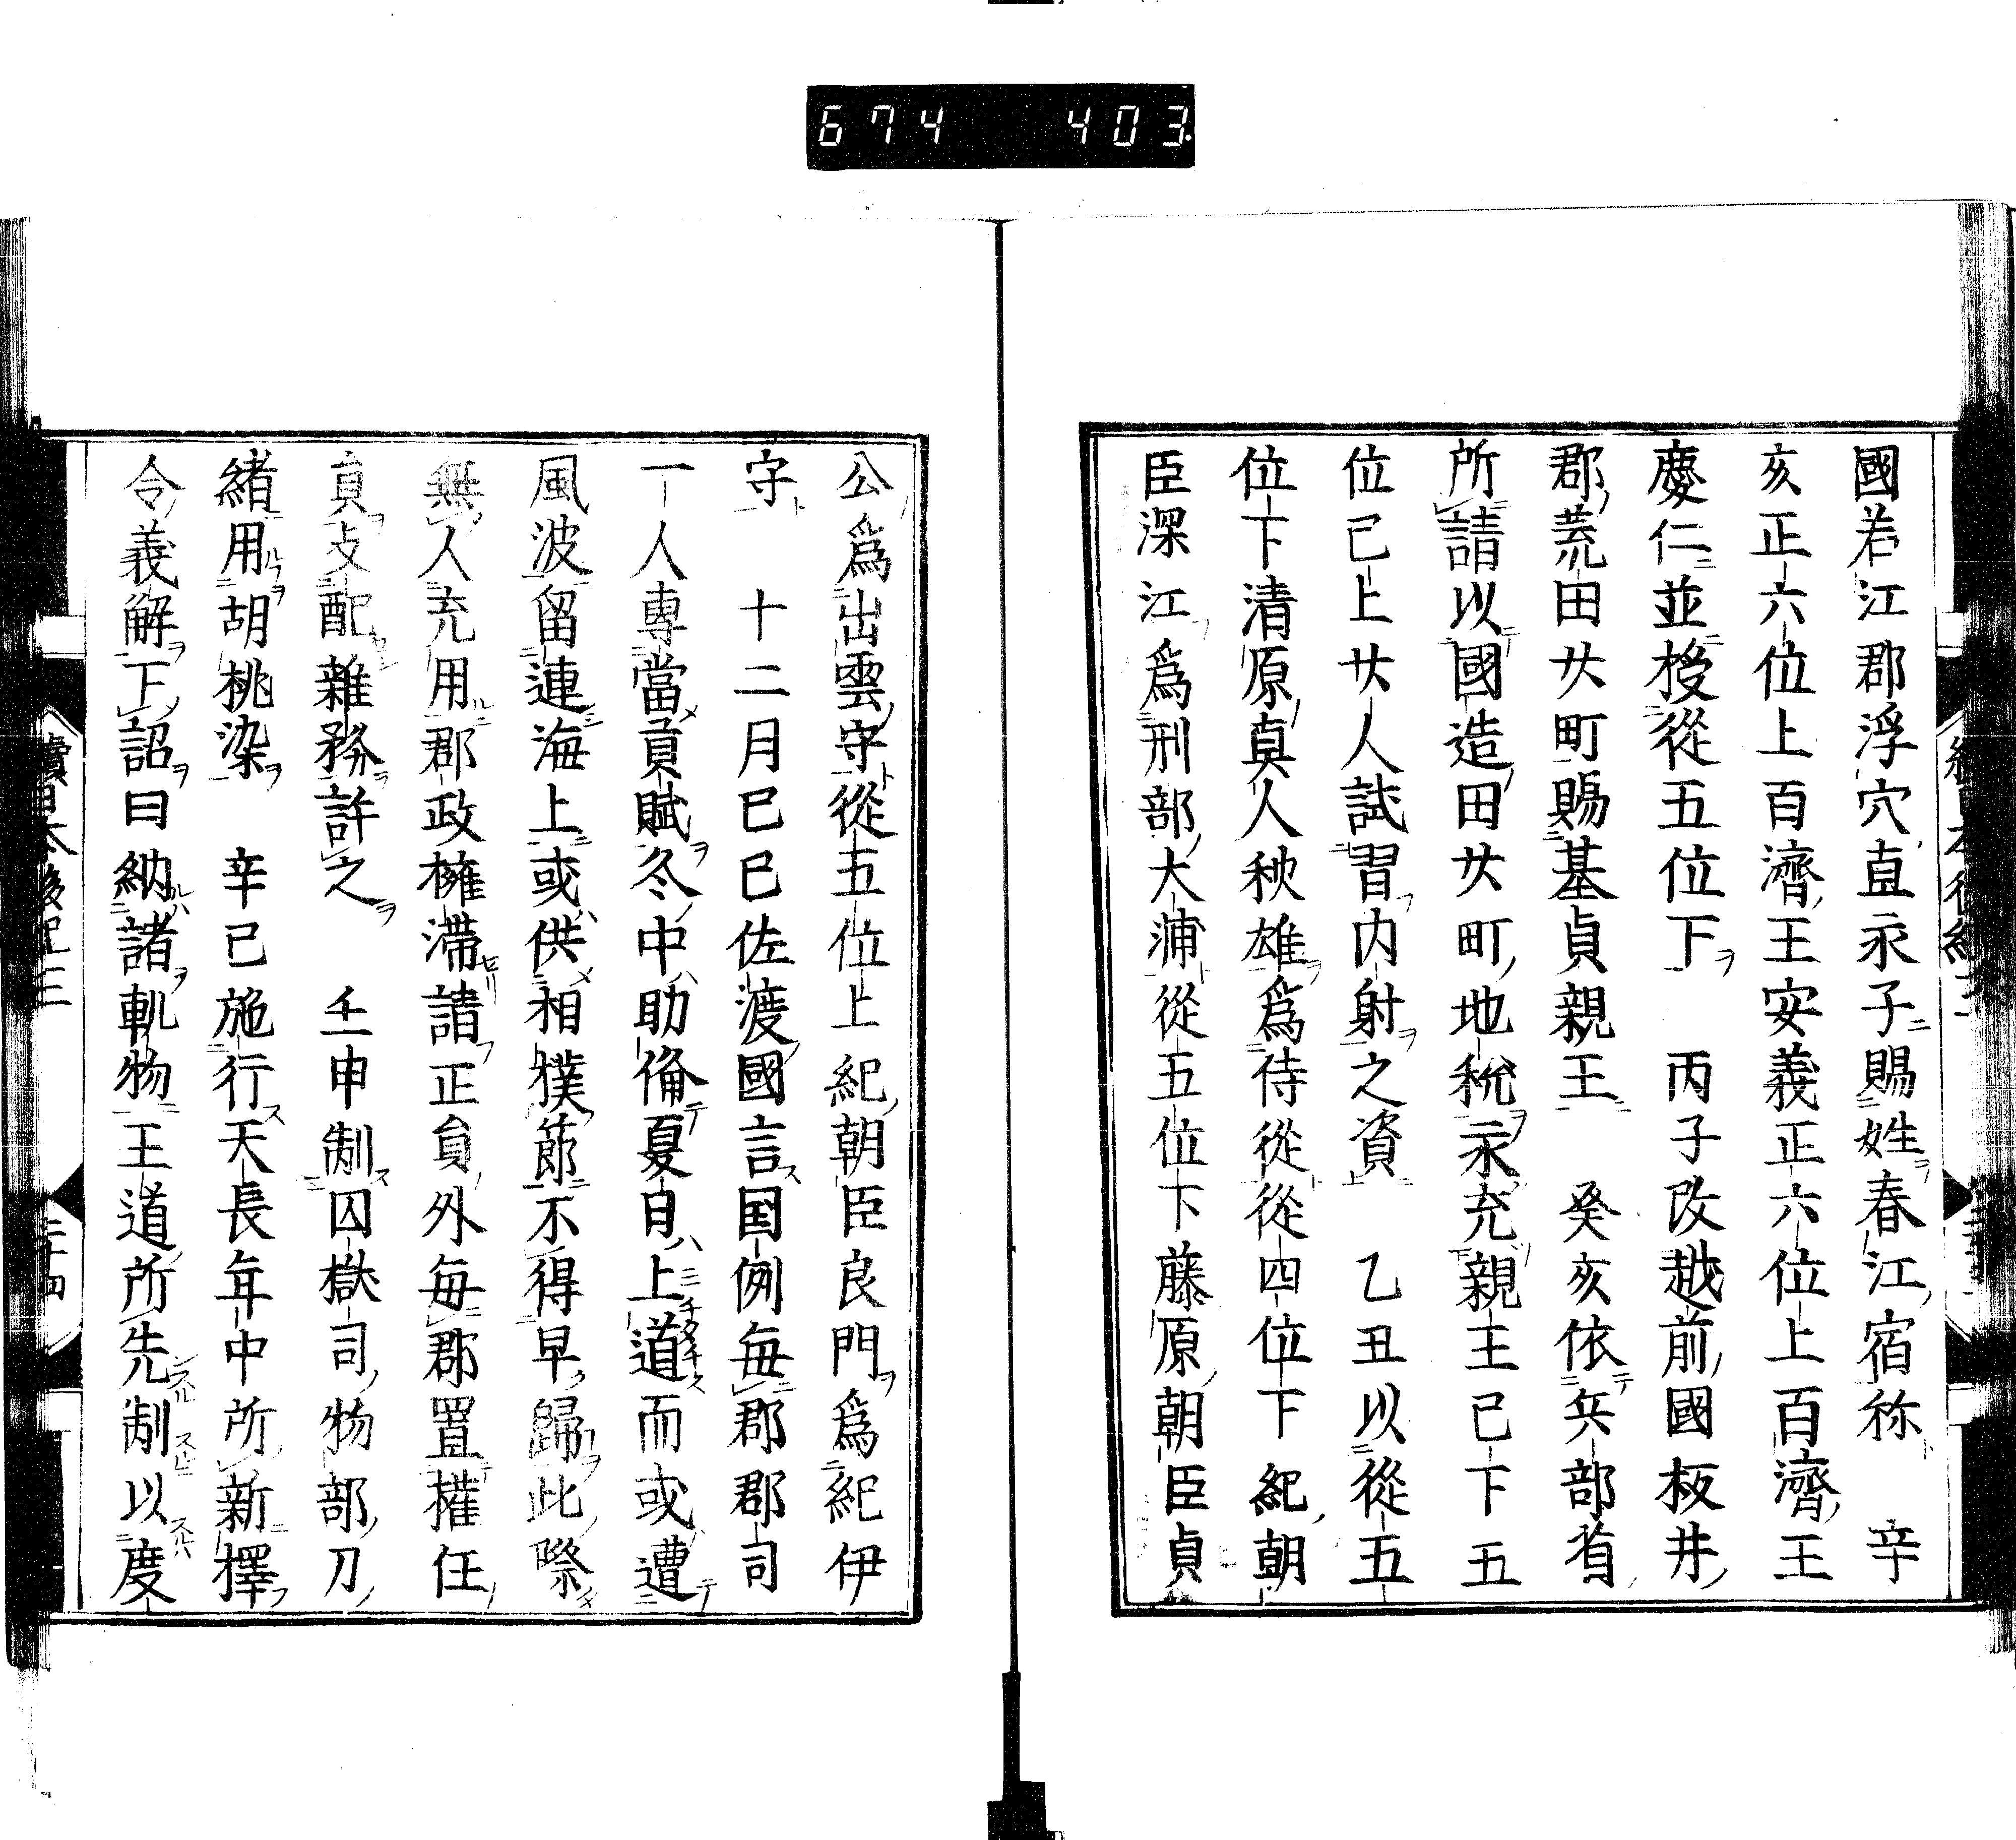 674 403
國若江郡浮穴直永子賜姓春江宿祢 辛
亥正六位上百濟王安義正六位上百濟王
慶仁並授從五位下 丙子改越前國坂井
郡荒田廿町賜基貞親王 癸亥依兵部省
所請以國造田廿町地稅永充親王已下五
位已上廿人試習内射之資 乙丑以從五
位下清原真人秋雄為侍從從四位下紀朝
臣深江為刑部大輔從五位下藤原朝臣貞
公為出雲守從五位上紀朝臣良門為紀伊
守 十二月己巳佐渡國言国例每郡郡司
一人專當貢賦冬中助俻夏月上道而或遭
風波留連海上或供相撲節不得早歸此際
無人充用郡政擁滯請正負外每郡置權任
負攴配雜務許之 壬申制囚獄司物部刀
緒用胡桃染 辛巳施行天長年中所新擇
令義解下詔曰納諸軌物王道所先制以度
續日本後紀三 二十四